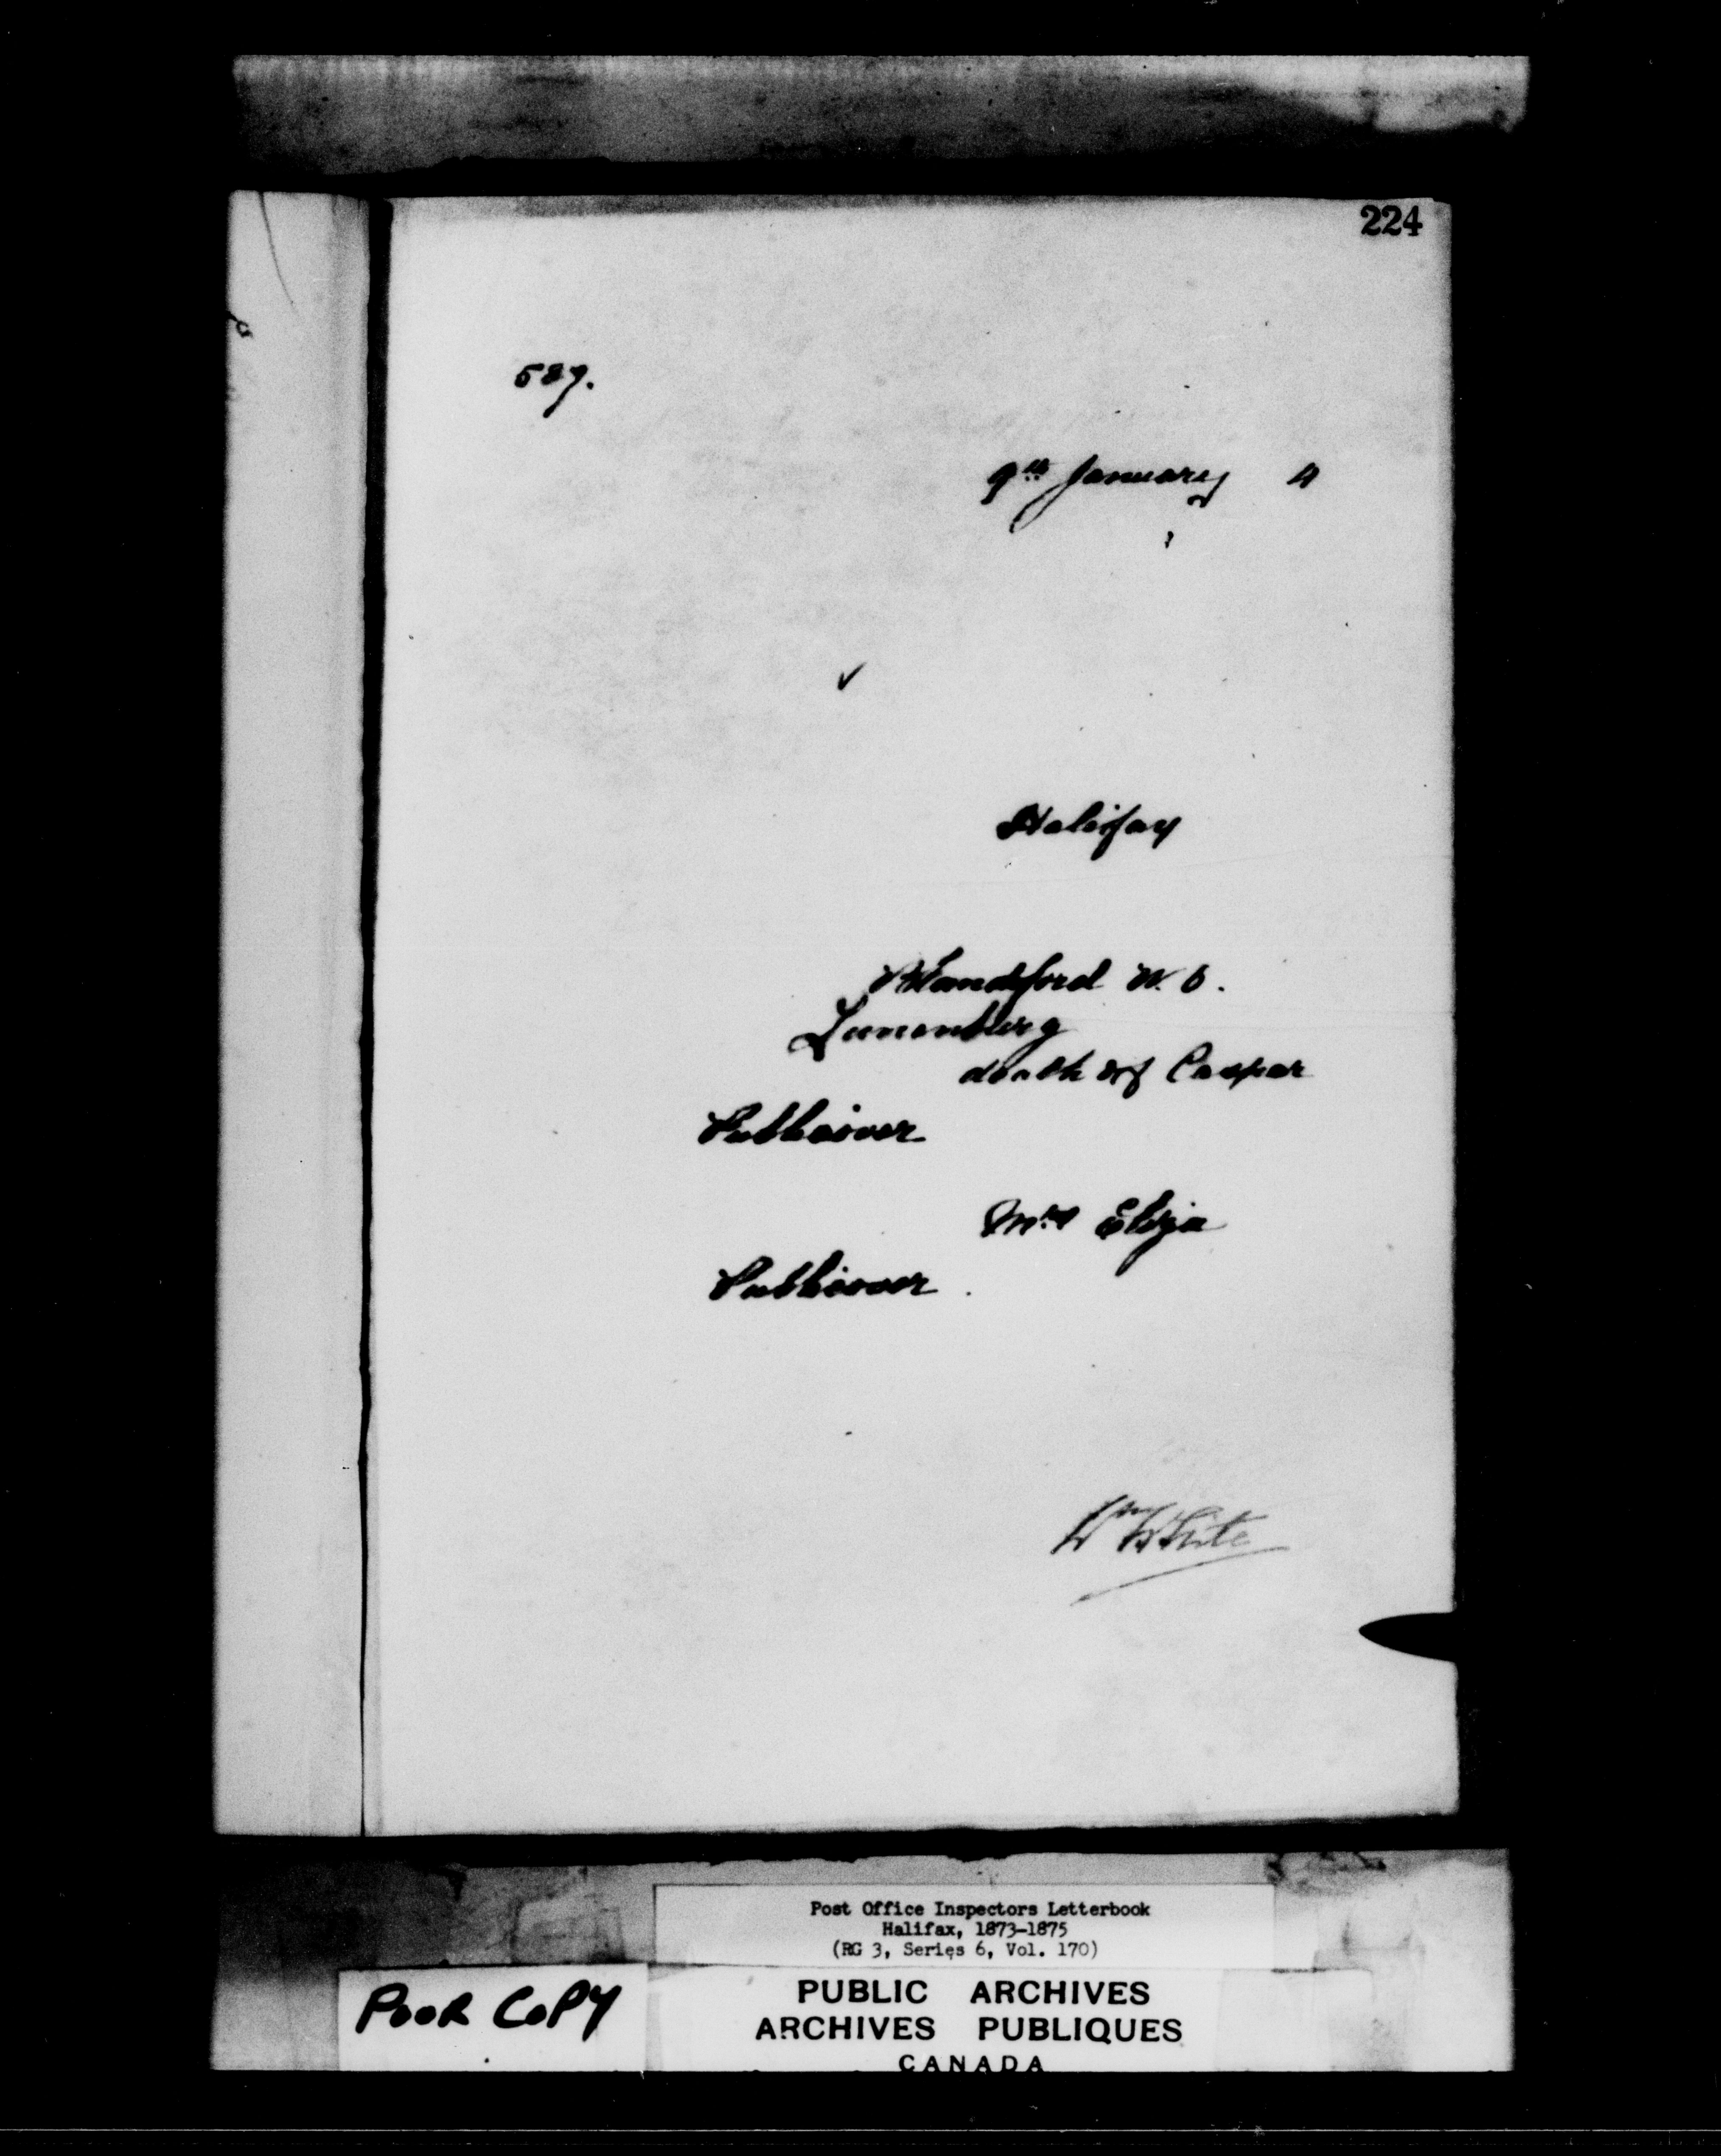 224
587.
9th January 4
✓
Halifax
Blandford W. O.
Lunenburg
death of Casper
Publicover
Mrs Eliza
Publicover.
Wm White
Post Office Inspectors Letterbook
Halifax, 1873-1875
(RG 3, Series 6, Vol. 170)
POOR COPY
PUBLIC ARCHIVES
ARCHIVES PUBLIQUES
CANADA